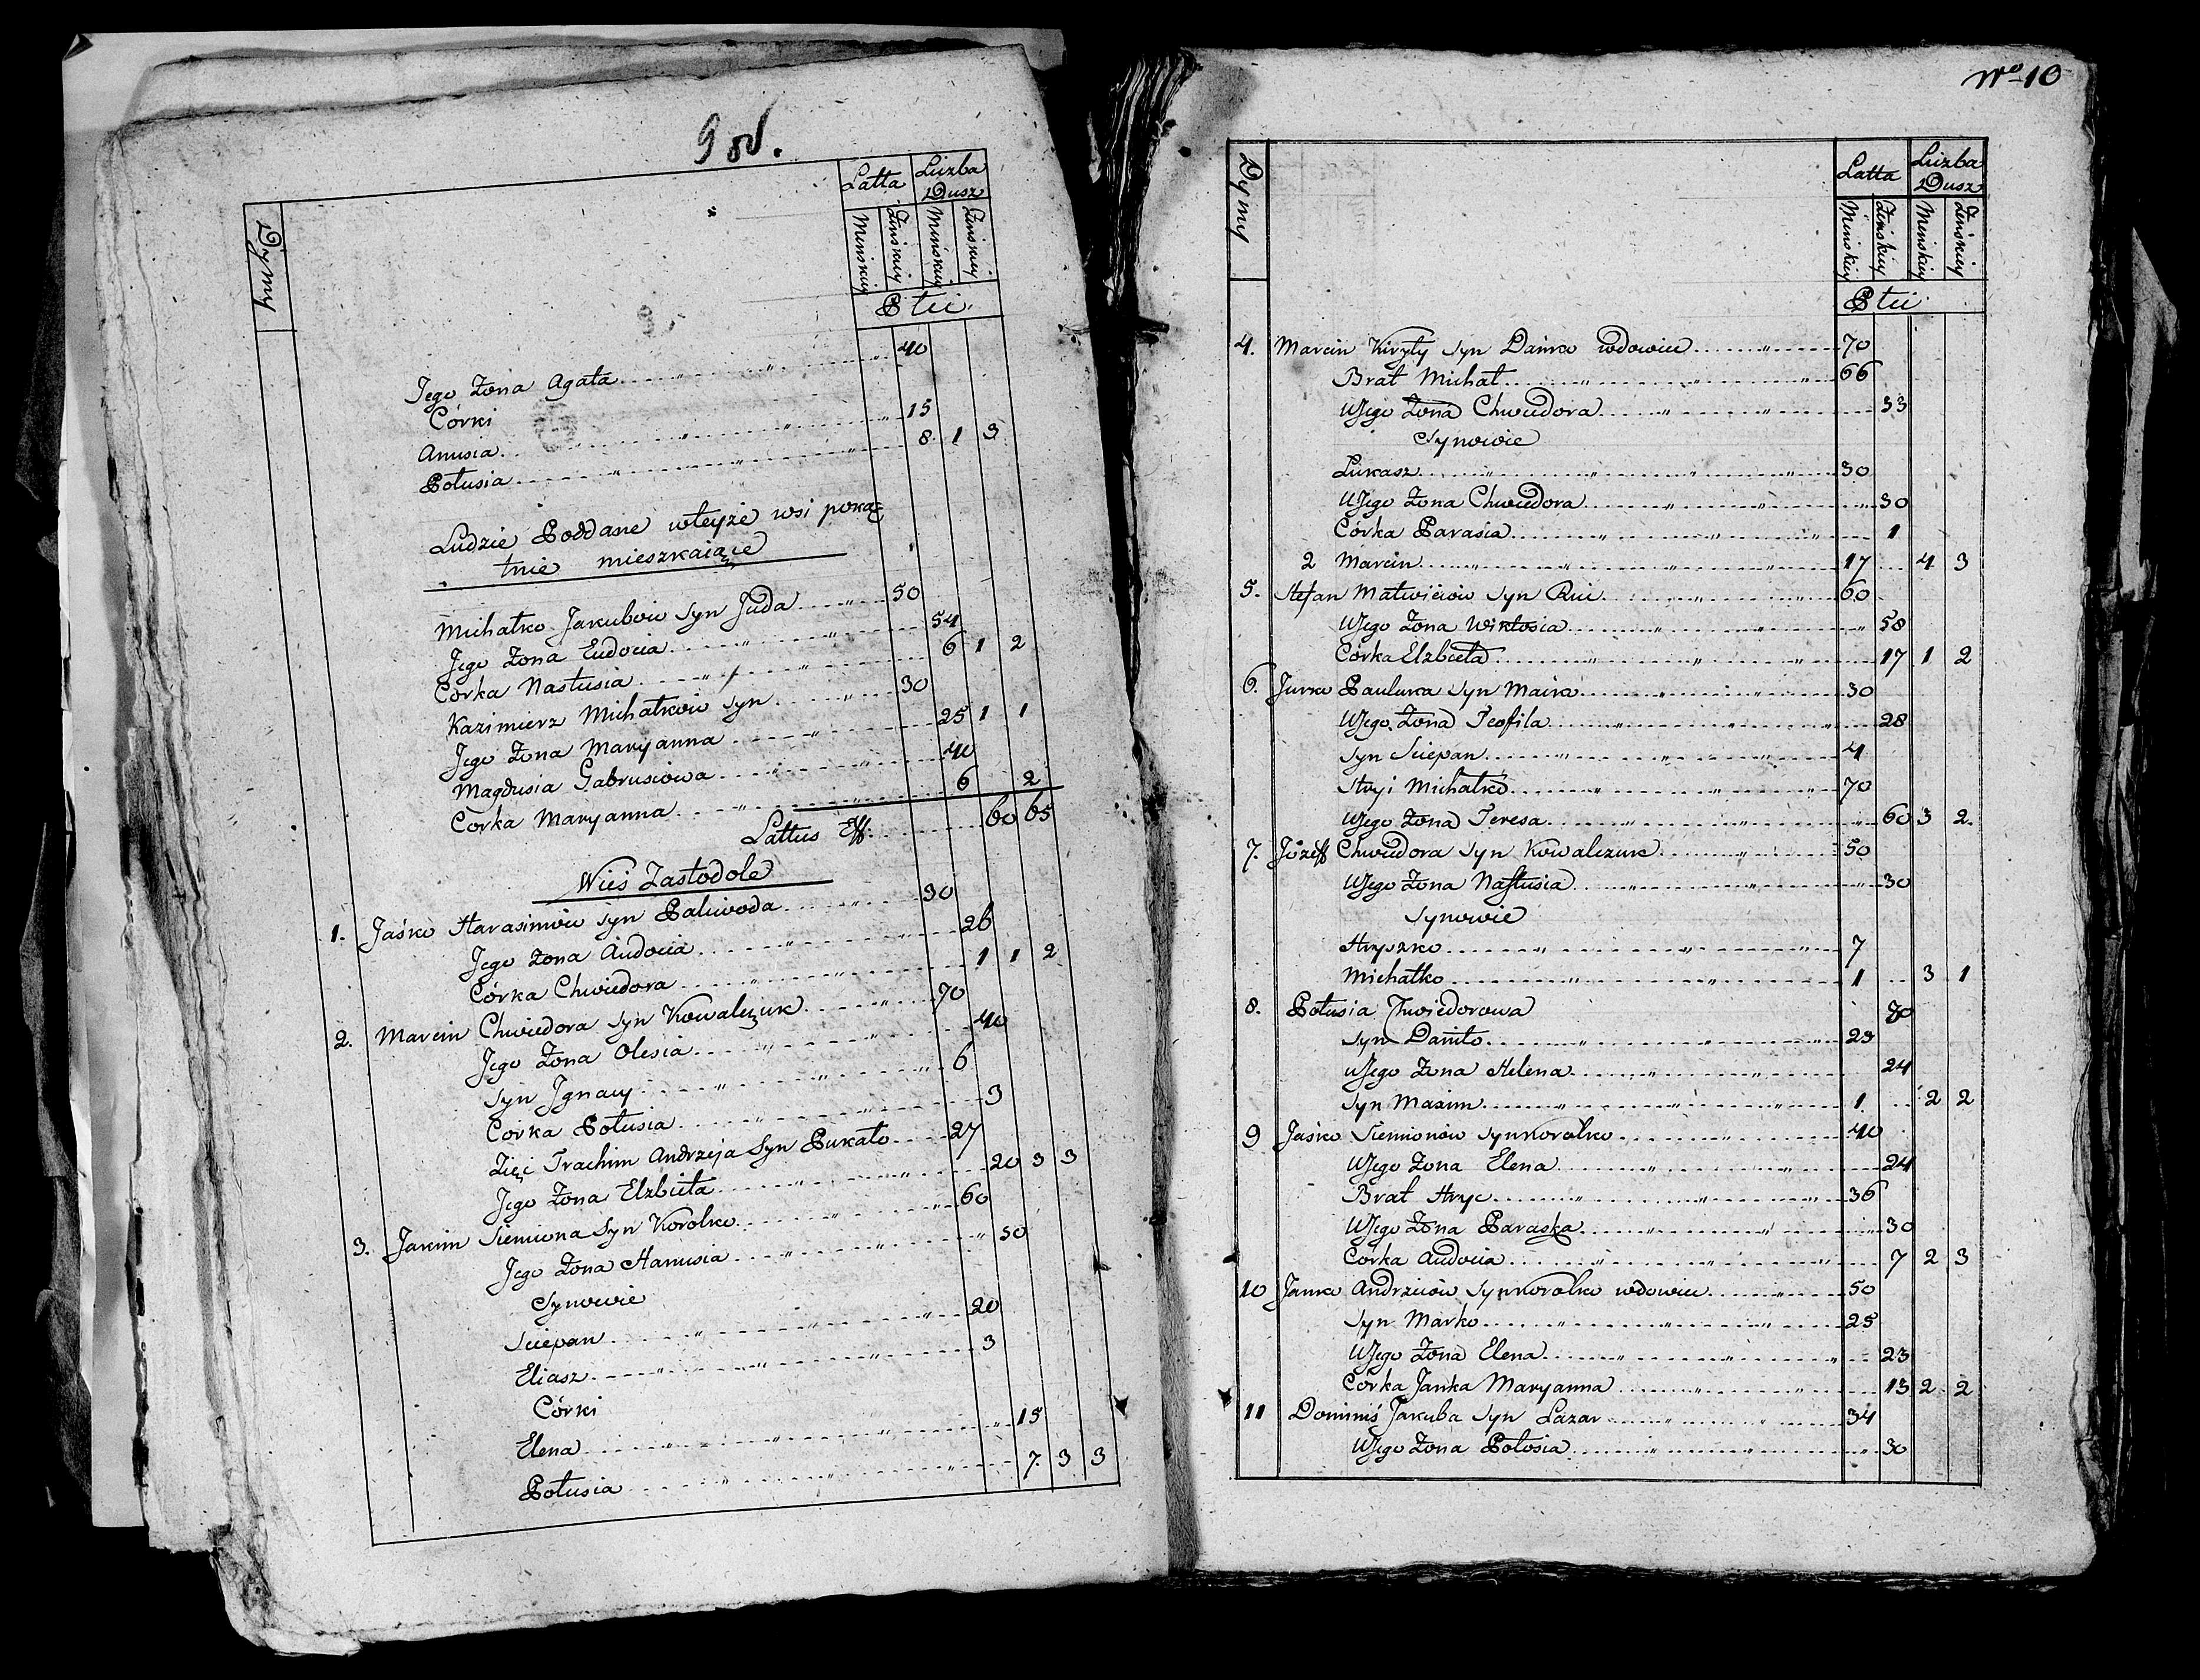 9 об.
Dymy
Latta
Liczba Dusz
Męśkiey Zeńskiey Męśkiey Zeńskiey
Płci
Jego Zona Agata 40
Córki
Anusia 15
Połusia 8 1 3
Ludzie Poddane wteyże wsi poką
tnie mieszkaiące
Michałko Jakubow Syn Juda 50
Jego Zona Eudocia 54
Córka Nastusia 6 1 2
Kazimierz Michałkow Syn 30
Jego Zona Maryanna 25 1 1
Magdusia Gabrusiowa 40
Córka Maryanna 6 2
Lattus Eff. 60 65
Wieś Zastodole
1. Jaśko Harasimow Syn Paliwoda 30
Jego Zona Audocia 26
Córka Chwiedora 1 1 2
2. Marcin Chwiedora Syn Kowalczuk 70
Jego Zona Olesia 40
Syn Jgnacy 6
Córka Połusia 3
Zięć Trachim Andrzeja Syn Pukało 27
Jego Zona Elzbieta 20 3 3
3. Jakim Siemiona Syn Korolko 60
Jego Zona Hanusia 50
Synowie
Sciepan 20
Eliasz 3
Córki
Elena 15
Połusia 7 3 3
No 10
Dymy
Latta
Liczba Dusz
Męśkiey Zeńskiey Męśkiey Zeńskiey
Płci
4. Marcin Kiryły Syn Dańko wdowiec 70
Brat Michał 66
Ujego Zona Chwiedora 53
Synowie
Łukasz 30
Ujego Zona Chwiedora 30
Córka Parasia 1
2 Marcin 17 4 3
5. Stefan Matwieiow Syn 60
Ujego Zona Wiktosia 58
Córka Elzbieta 17 1 2
6. Jurko Pauluka Syn Maika 30
Ujego Zona Teofila 28
Syn Sciepan 4
Stryi Michałko 70
Ujego Zona Teresa 60 3 2
7. Józeff Chwiedora Syn Kowalczuk 50
Ujego Zona Nastusia 30
Synowie
Hryszko 7
Michałko 1 3 1
8. Połusia Chwiedorowa 80
Syn Daniło 23
Ujego Zona Helena 24
Syn Maxim 1 2 2
9 Jaśko Siemionow Syn Korolko 40
Ujego Zona Elena 24
Brat Hryc 36
Ujego Zona Paraska 30
Córka Audocia 7 2 3
10 Janko Andrzeiow Syn Korolko wdowiec 50
Syn Marko 25
Ujego Zona Elena 23
Córka Janka Maryanna 13 2 2
11 Dominiś Jakuba Syn Łazar 34
Ujego Zona Połosia 30